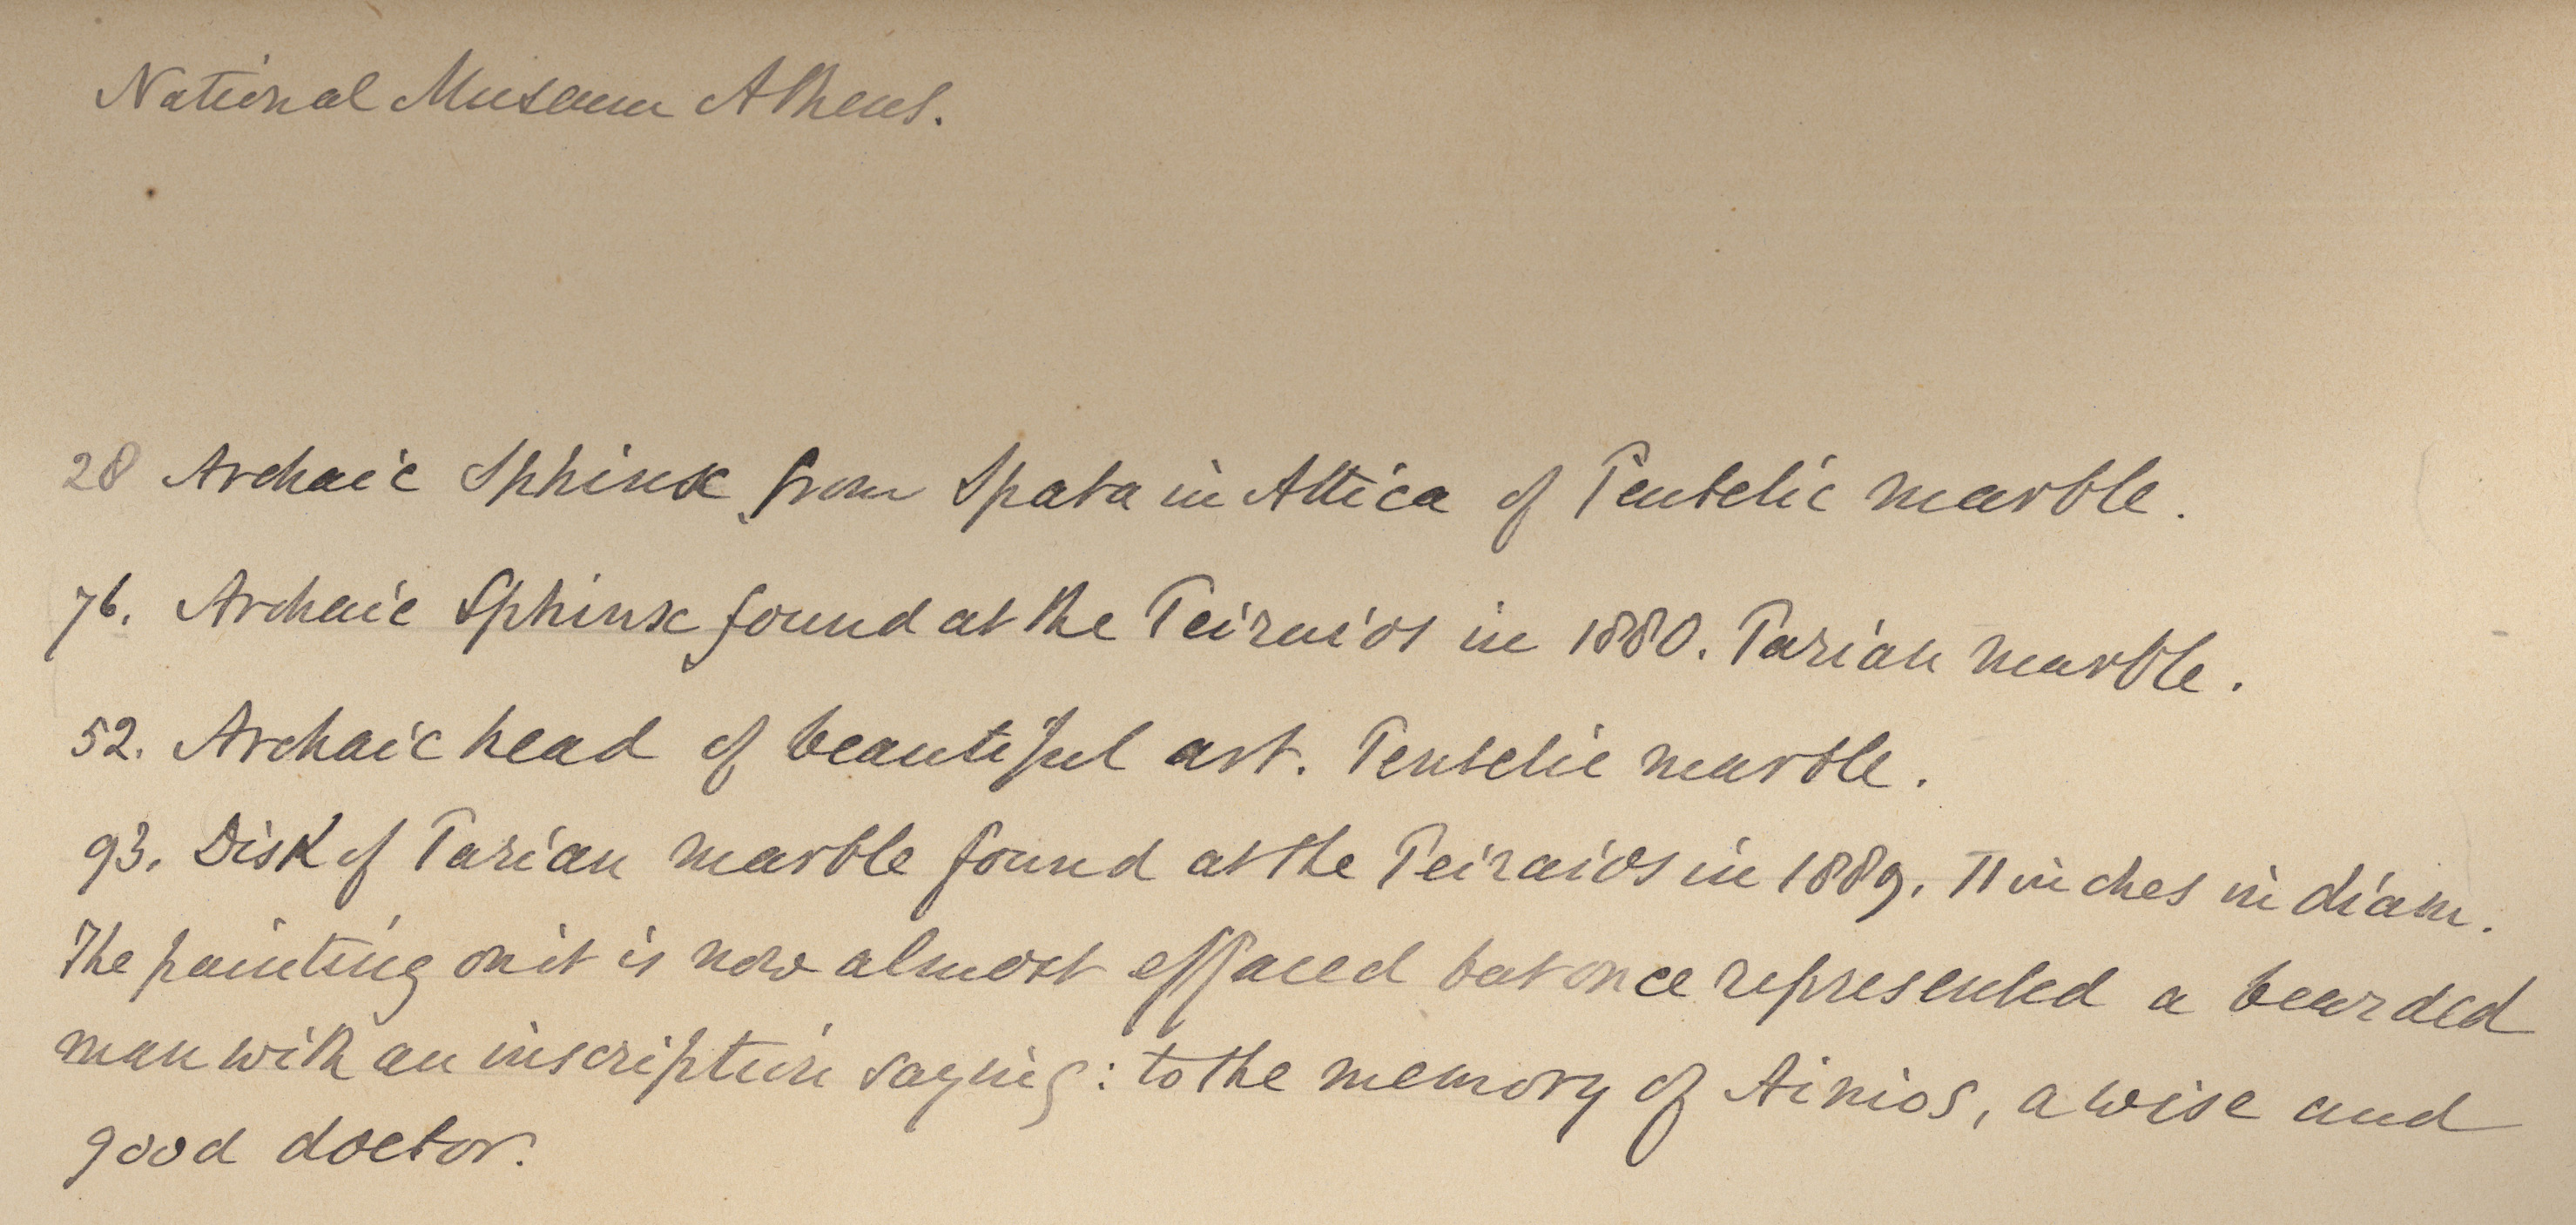 National Museum Athens.
28 Archaic Sphinx from Spata in Attica of Pentelic marble.
76. Archaic Sphinx found at the Peiraios in 1880. Parian marble.
52. Archaic head of beautiful art. Pentelic marble.
93. Disk of Parian marble found at the Peiraios in 1889. 11 inches in diam.
The painting on it is now almost effaced but once represented a bearded
man with an inscription saying: to the memory of Ainios, a wise and
good doctor.